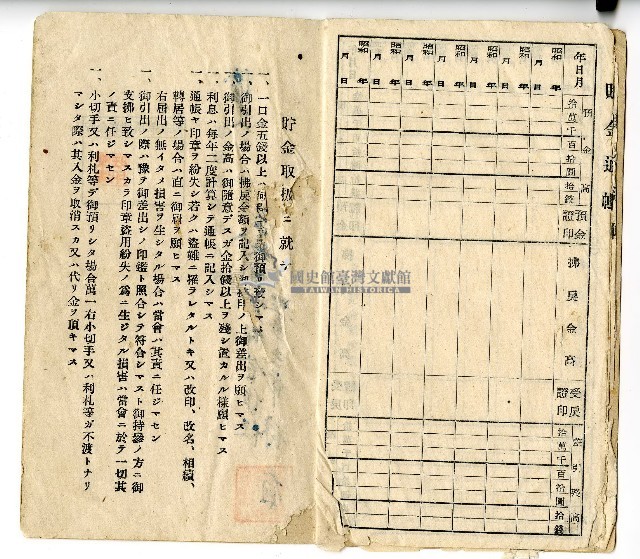 貯金取扱ニ就テ
一、一口金五錢以上ハ何時
御預リ致シマス
御引出ノ場合ハ拂戻金額ヲ記入シ御
印ノ上御差出ヲ願ヒマス
御引出ノ金高ハ御隨意デスガ金拾錢以上ヲ殘シ置カルル樣願ヒマス
利息ハ每年二度計算シテ通帳ニ記入シマス
一、通帳ヤ印章ヲ紛失シ若クハ盜難ニ罹ラレタルトキ又ハ改印、改名、相續、
轉居等ノ場合ハ直ニ御屆ヲ願ヒマス
右屆出ノ無イタメ損害ヲ生ジタル場合ハ當會ハ其責ニ任ジマセン
一、御引出ノ際ハ豫ヲ御差出シノ印鑑ト照合シテ符合シマスト御持參ノ方ニ御
支拂ヒ致シマスカラ印章盜用紛失ノ爲ニ生ジタル損害ハ當會ニ於テ一切其
ノ責ニ任ジマセン
一、小切手又ハ利札等デ御預リシタ場合萬一右小切手又ハ利札等ガ不渡トナリ
マシタ際ハ其入金ヲ取消スカ又ハ代リ金ヲ頂キマス
年月日
昭和 年 月 日
昭和 年 月 日
昭和 年 月 日
昭和 年 月 日
昭和 年 月 日
昭和 年 月 日
昭和 年 月 日
昭和 年 月 日
預金高
拾萬千百拾圓拾錢
預金證印
拂戻金高
受戻證印
差引殘高
拾萬千百拾圓拾錢
國史館臺灣文獻館
TAIWAN HISTORICA